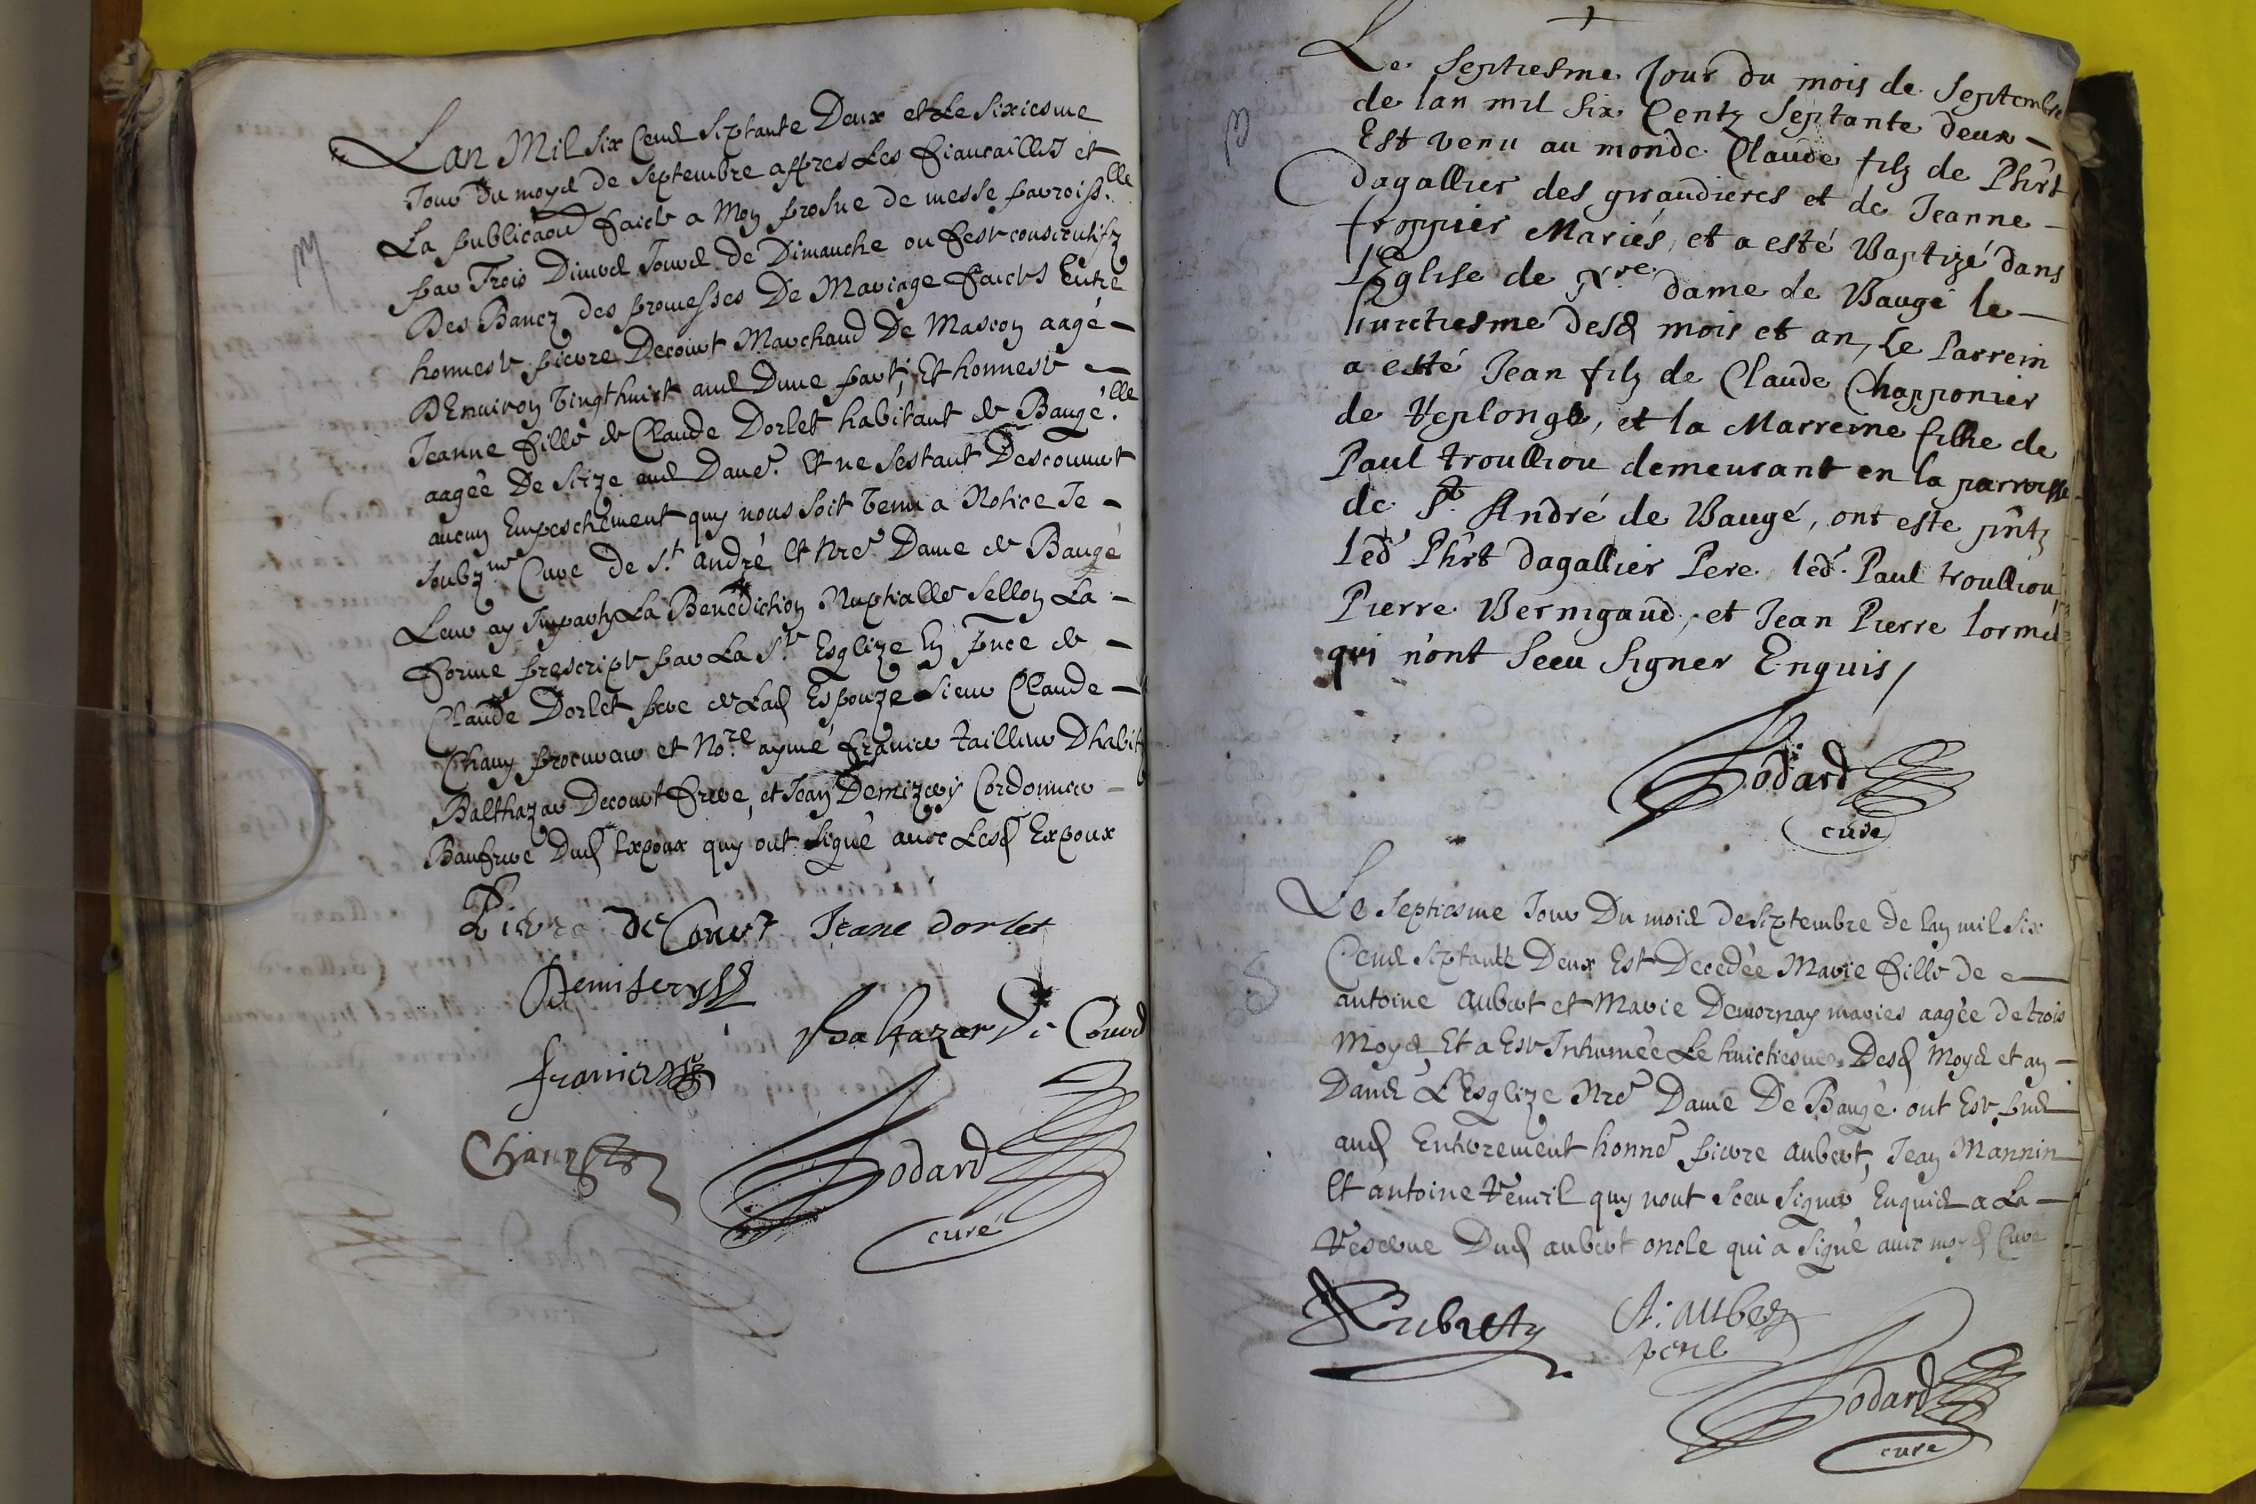 M
Lan Mil six Cens Septante Deux et Le Sixiesme
Jour du moys de Septembre appres Les fiancailles et
La publicaõn faicte a Mon prosne de messe parroiss.lle
par Trois Divers Jours de Dimanche ou feste consecutifz
Des Bancz des promesses De Mariage faictes Entre
honneste pierre Decourt Marchand De Mascon aagé —
D Environ vingthuict ans Dune part, Et honneste —
Jeanne fille de Claude Dorlet habitant de Baugé .lle
aagée De Seize ans Daue. Et ne sestant Descouvert
aucun Empeschement quy nous soit venu a Notice Je —
soubz.né Curé de S.t André et Nre Dame de Baugé
Leur ay Imparty La Benediction Nuptialle sellon La —
forme prescripte par La S.te Esglize En pnce de —
Claude Dorlet pere de Lad Espouze sieur Claude —
Chany procureur et No.re aymé franier tailleur Dhabitz
Balthazar Decourt frere, et Jean Demizery Cordonnier —
Beaufrere Dud Expoux quy ont signé avec Lesd Expoux
Pierre De Court Jeane dorlet
Demisery
Baltazar De Court
franier
Chany
Godard
curé
+
Le Septiesme Jour du mois de Septembre
B
de lan mil six Centz Septante deux —
Est venu au monde Claude filz de Phirt
dagallier des giraudieres et de Jeanne —
froppier Mariés, et a esté Baptizé dans
l'Eglise de Nre dame de Baugé le —
huictiesme desd mois et an, Le Parrein
a esté Jean filz de Claude Chapponier
de Veplongé, et la Marreine fillie de
Paul troulliou demeurant en la parroisse
de St. André de Baugé, ont este pñtz
led Phirt dagallier Pere, led. Paul troulliou,
Pierre Bernigaud, et Jean Pierre lormel
qui n'ont sceu signer Enquis /
Godard
curé
Le Septiesme Jour Du mois de Septembre de Lan mil six
S
Cens Septante Deux Est Decedée Marie fille de —
antoine aubert et Marie Demornay mariés aagée de trois
Moys Et a Esté Inhumée Le huictiesme Desd Moys et an —
Dans L'Esglize Nre Dame De Baugé ont Esté pns
aud Enterrement honne pierre aubert, Jean Mannin
Et antoine Vencil quy nont sceu signer Enquis a La —
Reserve Dud aubert oncle qui a signé avec moyd Curé
Aubert
A. Aubert
pere
Godard
curé